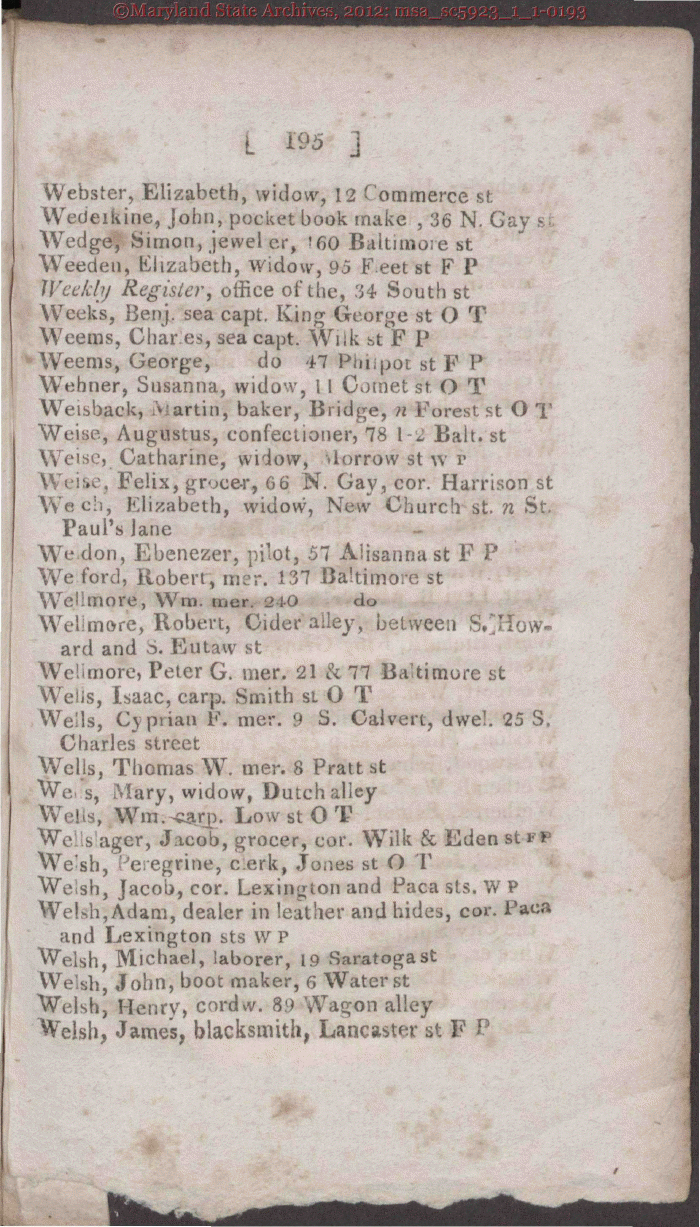 ©Maryland State Archives, 2012: msa_sc5923_1_1-0193
[ 195 ]
Webster, Elizabeth, widow, 12 Commerce st
Wederkine, John, pocket book make , 36 N. Gay st
Wedge, Simon, jewel er, 160 Baltimore st
Weeden, Elizabeth, widow, 95 F eet st F P
Weekly Register, office of the, 34 South st
Weeks, Benj. sea capt. King George st O T
Weems, Char es, sea capt. Wilk st F P
Weems, George, do 47 Philpot st F P
Wehner, Susanna, widow, 11 Comet st O T
Weisback, Martin, baker, Bridge, n Forest st O T
Weise, Augustus, confectioner, 78 1-2 Balt. st
Weise, Catharine, widow, Morrow st W P
Weise, Felix, grocer, 66 N. Gay, cor. Harrison st
We ch, Elizabeth, widow, New Church st. n St.
Paul's lane
We don, Ebenezer, pilot, 57 Alisanna st F P
We ford, Robert, mer. 137 Baltimore st
Wellmore, Wm. mer. 240 do
Wellmore, Robert, Cider alley, between S. How-
ard and S. Eutaw st
Wellmore, Peter G. mer. 21 & 77 Baltimore st
Wells, Isaac, carp. Smith st O T
Wells, Cyprian F. mer. 9 S. Calvert, dwel. 25 S.
Charles street
Wells, Thomas W. mer. 8 Pratt st
We s, Mary, widow, Dutch alley
Wells, Wm. carp. Low st O T
Wellslager, Jacob, grocer, cor. Wilk & Eden st F P
Welsh, Peregrine, clerk, Jones st O T
Welsh, Jacob, cor. Lexington and Paca sts. W P
Welsh, Adam, dealer in leather and hides, cor. Paca
and Lexington sts W P
Welsh, Michael, laborer, 19 Saratoga st
Welsh, John, boot maker, 6 Water st
Welsh, Henry, cordw. 89 Wagon alley
Welsh, James, blacksmith, Lancaster st F P